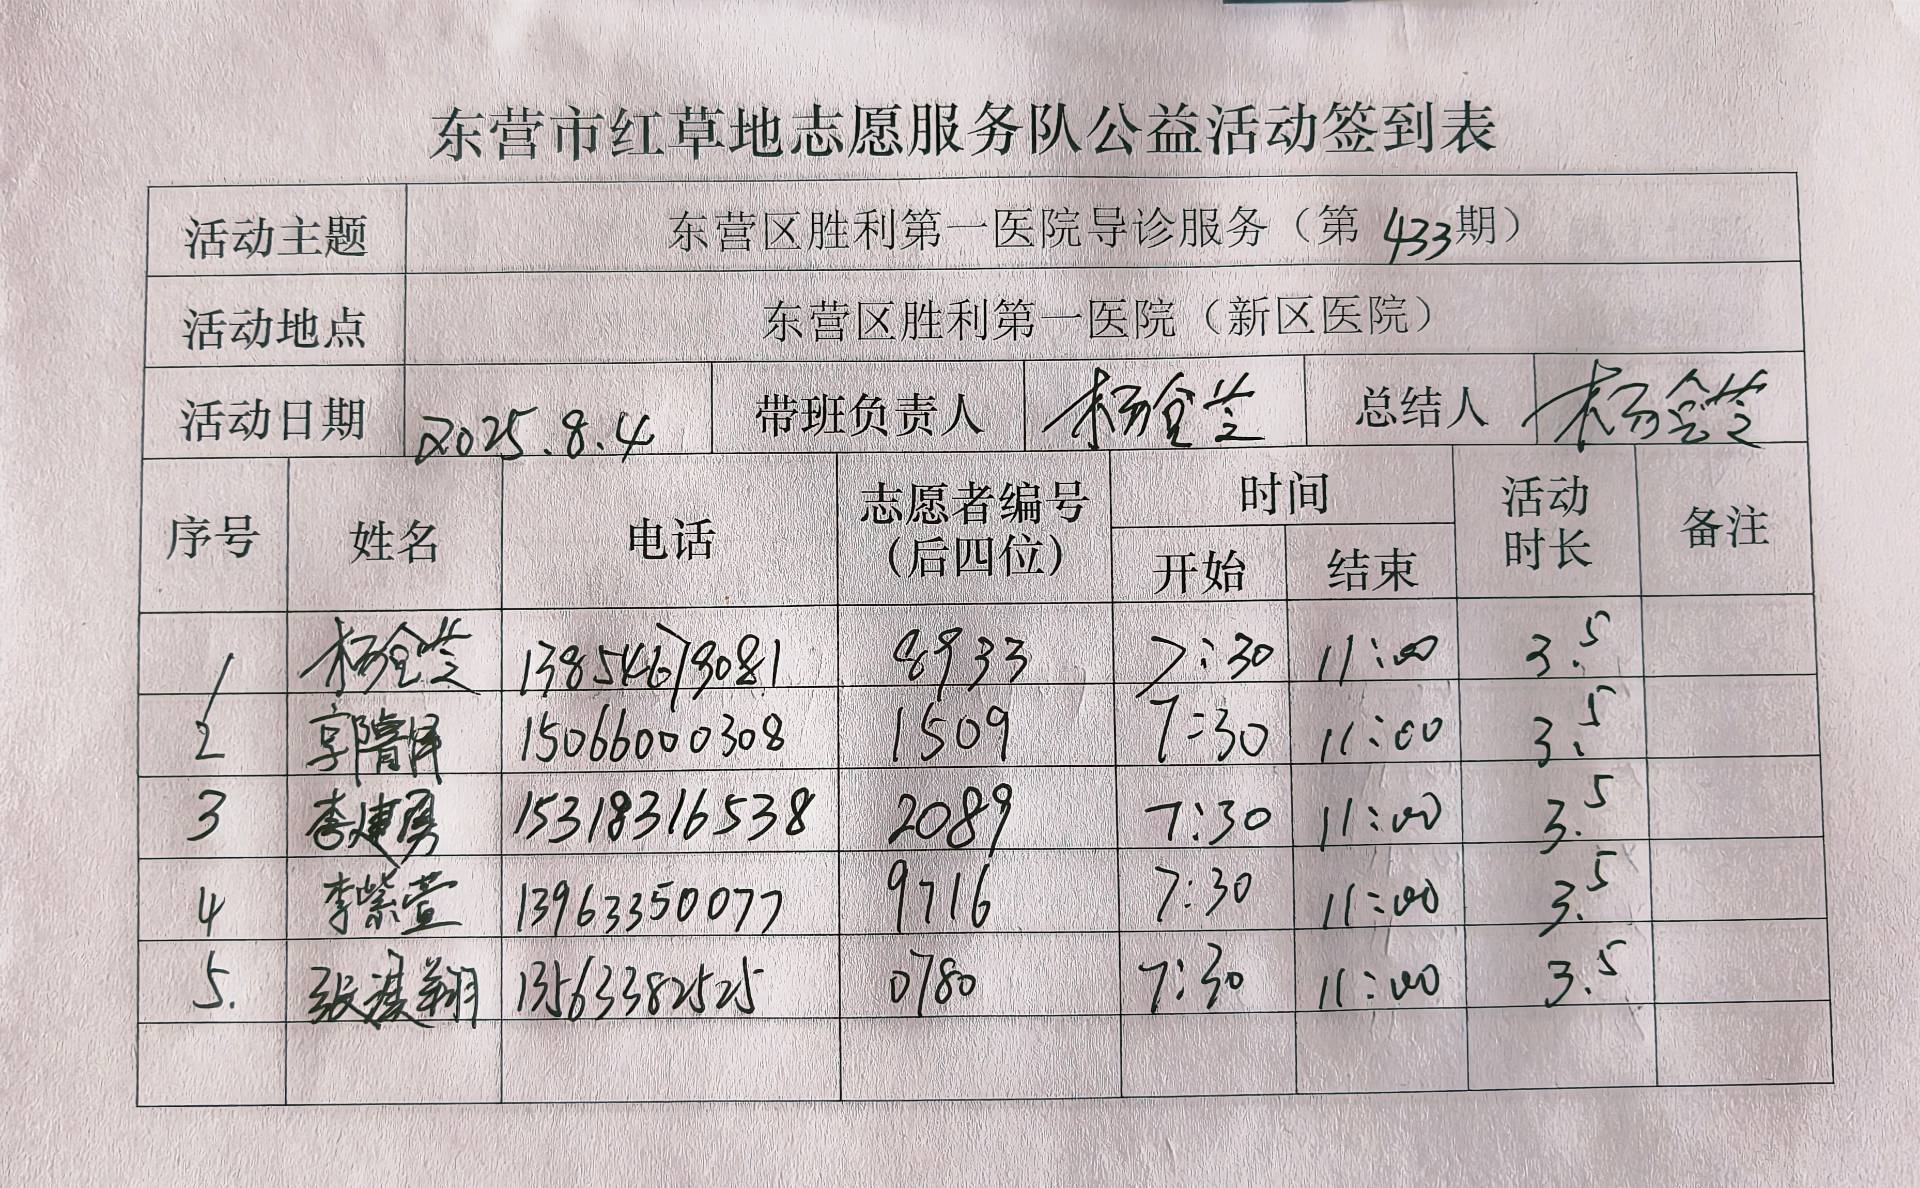 东营市红草地志愿服务队公益活动签到表
活动主题 东营区胜利第一医院导诊服务（第 433期）
活动地点 东营区胜利第一医院（新区医院）
活动日期 2025.8.4 带班负责人 杨金芝 总结人 杨金芝
序号 姓名 电话 志愿者编号（后四位） 时间 开始 结束 活动时长 备注
1 杨金芝 13854679081 8933 7:30 11:00 3.5
2 郭 15066000308 1509 7:30 11:00 3.5
3 李建勇 15318316538 2089 7:30 11:00 3.5
4 李紫萱 13963350077 9716 7:30 11:00 3.5
5. 张淇翔 13563382525 0780 7:30 11:00 3.5